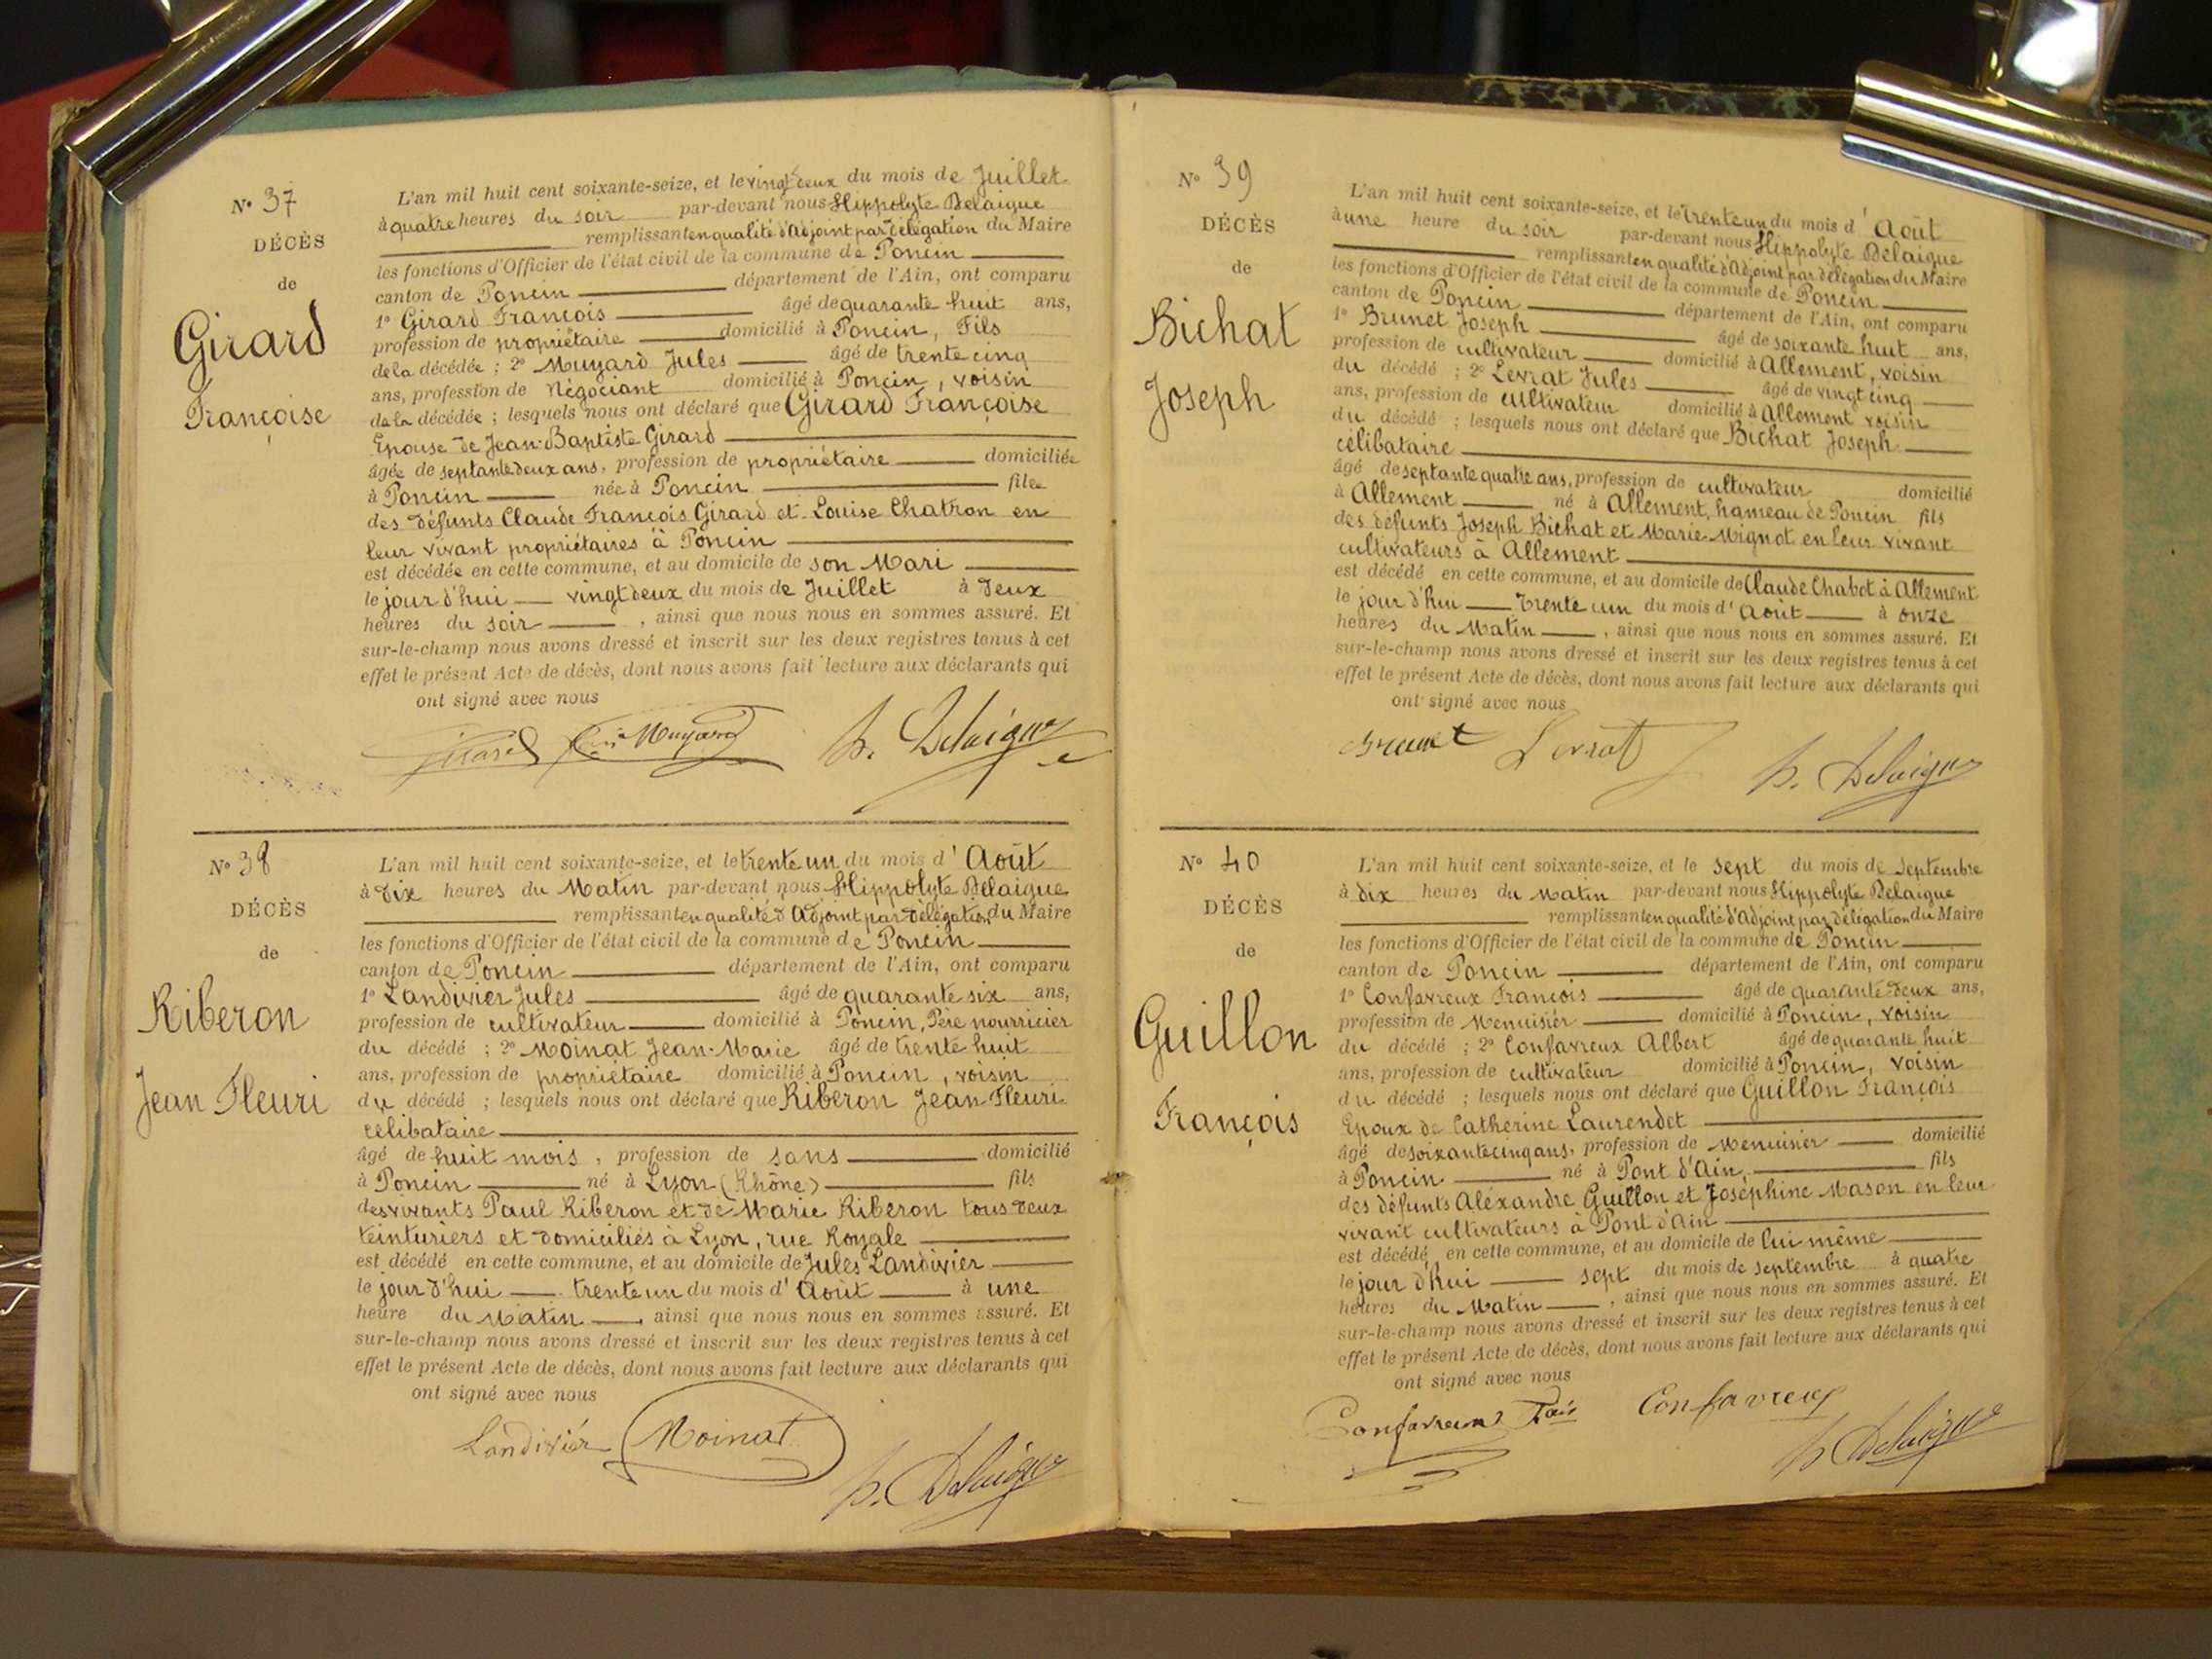 N° 37
DÉCÈS
de
Girard
Françoise
L'an mil huit cent soixante-seize, et le vingt deux du mois de Juillet
à quatre heures du soir par-devant nous Hippolyte Delaigue
remplissant en qualité d'adjoint par délégation du Maire
les fonctions d'Officier de l'état civil de la commune de Poncin
canton de Poncin département de l'Ain, ont comparu
1° Girard François âgé de quarante huit ans,
profession de propriétaire domicilié à Poncin, Fils
de la décédée ; 2° Mugard Jules âgé de trente cinq
ans, profession de Négociant domicilié à Poncin, voisin
de la décédée ; lesquels nous ont déclaré que Girard Françoise
Epouse de Jean-Baptiste Girard
âgée de septante deux ans, profession de propriétaire domiciliée
à Poncin née à Poncin fille
des défunts Claude François Girard et Louise Chatron en
leur vivant propriétaires à Poncin
est décédée en cette commune, et au domicile de son Mari
le jour d'hui vingt deux du mois de Juillet à deux
heures du soir , ainsi que nous nous en sommes assuré. Et
sur-le-champ nous avons dressé et inscrit sur les deux registres tenus à cet
effet le présent Acte de décès, dont nous avons fait lecture aux déclarants qui
ont signé avec nous
Girard Mugard h. Delaigue
N° 38
DÉCÈS
de
Riberon
Jean Fleuri
L'an mil huit cent soixante-seize, et le trente un du mois d' Août
à dix heures du Matin par-devant nous Hippolyte Delaigue
remplissant en qualité d'Adjoint par délégation du Maire
les fonctions d'Officier de l'état civil de la commune de Poncin
canton de Poncin département de l'Ain, ont comparu
1° Landivier Jules âgé de quarante six ans,
profession de cultivateur domicilié à Poncin, Père nourricier
du décédé ; 2° Moinat Jean-Marie âgé de trente huit
ans, profession de propriétaire domicilié à Poncin, voisin
du décédé ; lesquels nous ont déclaré que Riberon Jean-Fleuri
célibataire
âgé de huit mois, profession de sans domicilié
à Poncin né à Lyon (Rhône) fils
des vivants Paul Riberon et de Marie Riberon tous deux
teinturiers et domiciliés à Lyon, rue Royale
est décédé en cette commune, et au domicile de Jules Landivier
le jour d'hui trente un du mois d' Août à une
heure du Matin , ainsi que nous nous en sommes assuré. Et
sur-le-champ nous avons dressé et inscrit sur les deux registres tenus à cet
effet le présent Acte de décès, dont nous avons fait lecture aux déclarants qui
ont signé avec nous
Landivier Moinat h. Delaigue
N° 39
DÉCÈS
de
Bichat
Joseph
L'an mil huit cent soixante-seize, et le trente un du mois d' Août
à une heure du soir par-devant nous Hippolyte Delaigue
remplissant en qualité d'Adjoint par délégation du Maire
les fonctions d'Officier de l'état civil de la commune de Poncin
canton de Poncin département de l'Ain, ont comparu
1° Brunet Joseph âgé de soixante huit ans,
profession de cultivateur domicilié à Allement, voisin
du décédé ; 2° Levrat Jules âgé de vingt cinq
ans, profession de cultivateur domicilié à Allement voisin
du décédé ; lesquels nous ont déclaré que Bichat Joseph
célibataire
âgé de septante quatre ans, profession de cultivateur domicilié
à Allement né à Allement, hameau de Poncin fils
des défunts Joseph Bichat et Marie Mignot en leur vivant
cultivateurs à Allement
est décédé en cette commune, et au domicile de Claude Chabot à Allement
le jour d'hui trente un du mois d' Août à onze
heures du Matin , ainsi que nous nous en sommes assuré. Et
sur-le-champ nous avons dressé et inscrit sur les deux registres tenus à cet
effet le présent Acte de décès, dont nous avons fait lecture aux déclarants qui
ont signé avec nous
Brunet Levrat h. Delaigue
N° 40
DÉCÈS
de
Guillon
François
L'an mil huit cent soixante-seize, et le sept du mois de septembre
à dix heures du Matin par-devant nous Hippolyte Delaigue
remplissant en qualité d'Adjoint par délégation du Maire
les fonctions d'Officier de l'état civil de la commune de Poncin
canton de Poncin département de l'Ain, ont comparu
1° Confavreux François âgé de quarante deux ans,
profession de Menuisier domicilié à Poncin, voisin
du décédé ; 2° Confavreux Albert âgé de quarante huit
ans, profession de cultivateur domicilié à Poncin, voisin
du décédé ; lesquels nous ont déclaré que Guillon François
Epoux de Catherine Laurendet
âgé de soixante cinq ans, profession de Menuisier domicilié
à Poncin né à Pont d'Ain, fils
des défunts Alexandre Guillon et Joséphine Mason en leur
vivant cultivateurs à Pont d'Ain
est décédé en cette commune, et au domicile de lui même
le jour d'hui sept du mois de septembre à quatre
heures du Matin , ainsi que nous nous en sommes assuré. Et
sur-le-champ nous avons dressé et inscrit sur les deux registres tenus à cet
effet le présent Acte de décès, dont nous avons fait lecture aux déclarants qui
ont signé avec nous
Confavreux Confavreux
h Delaigue